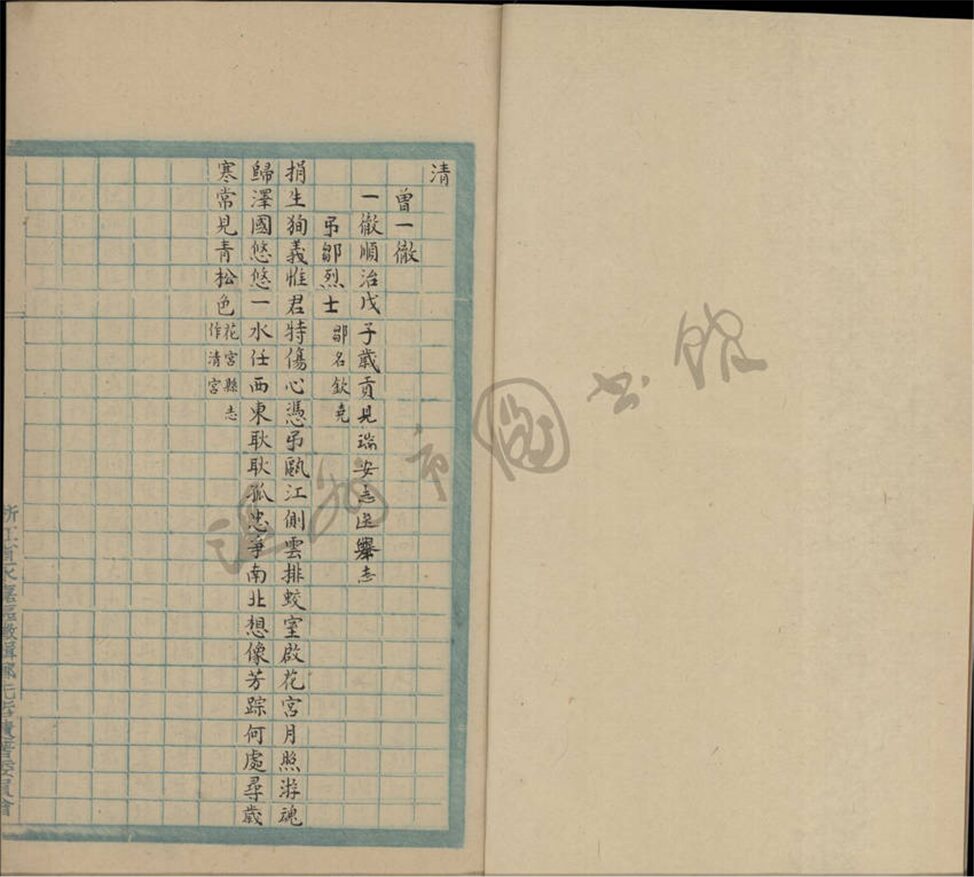 清
曾一徹
一徹順治戊子歲貢見瑞安志選舉志
弔鄒烈士 鄒名欽堯
捐生狥義惟君特傷心憑弔甌江側雲排蛟室啟花宮月照游魂
歸澤國悠悠一水任西東耿耿孤忠爭南北想像芳踪何處尋歲
寒常見青松色 花宮縣志
作清宮
浙江
永嘉區徵輯鄉先哲遺著委員會
溫州市圖書館